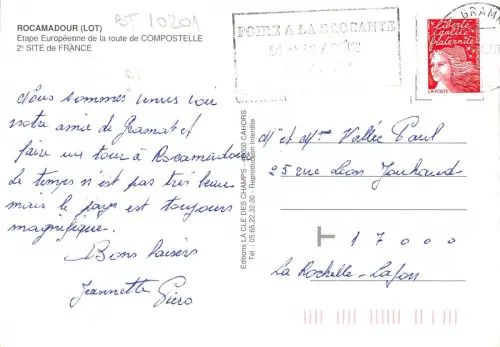 ROCAMADOUR (LOT)
Etape Européenne de la route de COMPOSTELLE
2e SITE de FRANCE
BT 10201
FOIRE A LA BROCANTE
AOÛT
GRAMA
liberté
égalité
fraternité
LA POSTE
Nous sommes venus voir
notre amie de Gramat et
faire un tour à Rocamadour
Le temps n'est pas très beau
mais le pays est toujours
magnifique.
Bons baisers
Jeannette Piero
Editions LA CLE DES CHAMPS - 46000 CAHORS
Tél. : 05.65.22.32.30 - Reproduction interdite
Mr et Mme Vallée Paul
25 rue Léon Jouhaud
17000
La Rochelle-Lafon